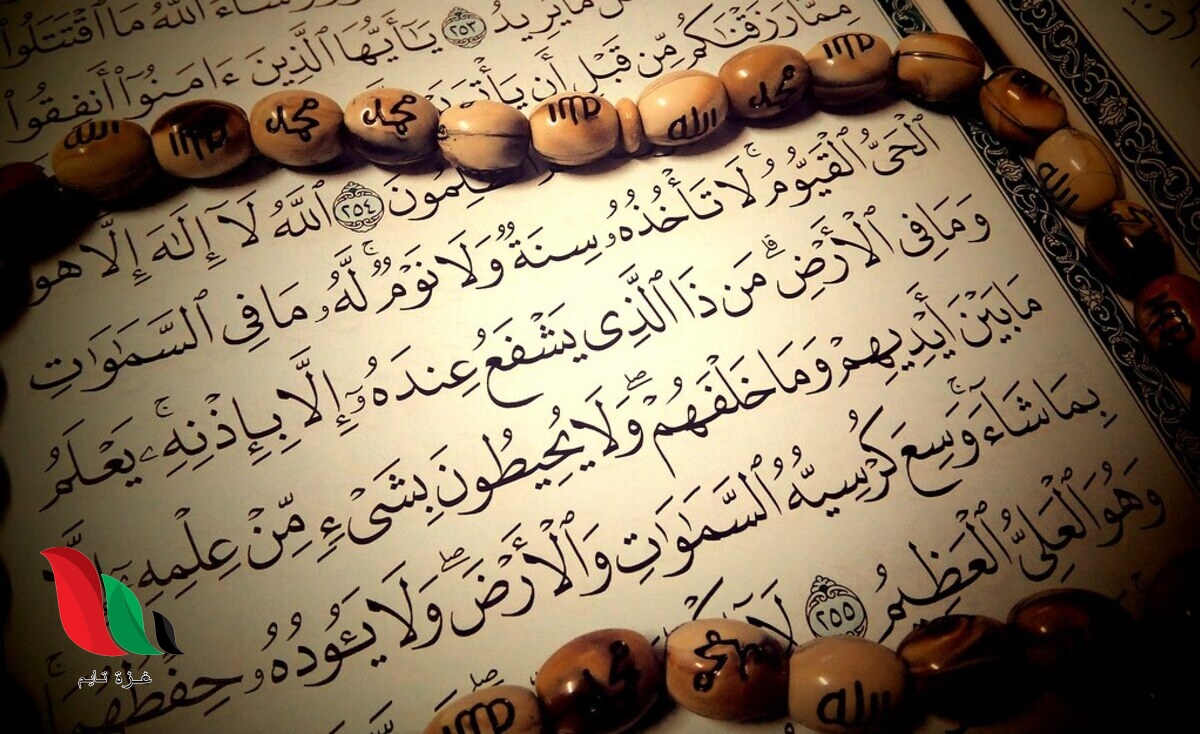 شَآءَ ٱللَّهُ مَا ٱقْتَتَلُوا۟
مَا يُرِيدُ ٢٥٣ يَٰٓأَيُّهَا ٱلَّذِينَ ءَامَنُوٓا۟ أَنفِقُوا۟
مِمَّا رَزَقْنَٰكُم مِّن قَبْلِ أَن
٢٥٤ ٱللَّهُ لَآ إِلَٰهَ إِلَّا هُوَ
ٱلْحَىُّ ٱلْقَيُّومُ ۚ لَا تَأْخُذُهُۥ سِنَةٌ وَلَا نَوْمٌ ۚ لَّهُۥ مَا فِى ٱلسَّمَٰوَٰتِ
وَمَا فِى ٱلْأَرْضِ ۗ مَن ذَا ٱلَّذِى يَشْفَعُ عِندَهُۥٓ إِلَّا بِإِذْنِهِۦ ۚ يَعْلَمُ
مَا بَيْنَ أَيْدِيهِمْ وَمَا خَلْفَهُمْ ۖ وَلَا يُحِيطُونَ بِشَىْءٍ مِّنْ عِلْمِهِۦٓ إِلَّا
بِمَا شَآءَ ۚ وَسِعَ كُرْسِيُّهُ ٱلسَّمَٰوَٰتِ وَٱلْأَرْضَ ۖ وَلَا يَـُٔودُهُۥ حِفْظُهُمَا ۚ
وَهُوَ ٱلْعَلِىُّ ٱلْعَظِيمُ ٢٥٥ لَآ
الله
محمد
محمد
محمد
محمد
الله
محمد
محمد
الله
محمد
محمد
محمد
الله
غزة تايم